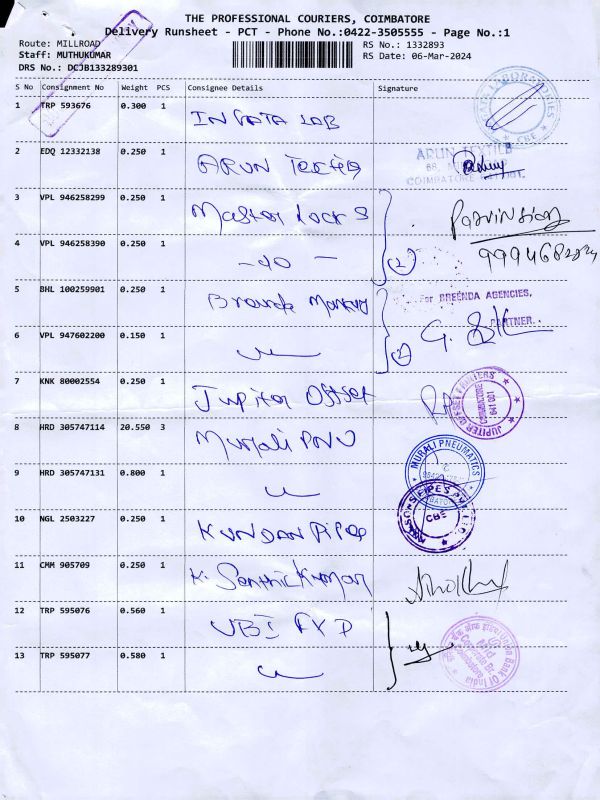 THE PROFESSIONAL COURIERS, COIMBATORE
Delivery Runsheet - PCT - Phone No.:0422-3505555 - Page No.:1
Route: MILLROAD
RS No.: 1332893
Staff: MUTHUKUMAR
RS Date: 06-Mar-2024
DRS No.: DCJB133289301
S No Consignment No Weight PCS Consignee Details Signature
1 TRP 593676 0.300 1
CBE
2 EDQ 12332138 0.250 1 ARUN
ARUN TEXTILE
COIMBATORE
3 VPL 946258299 0.250 1 Master Lock S
4 VPL 946258390 0.250 1 - do -
(2)
5 BHL 100259901 0.250 1
For BREENDA AGENCIES,
PARTNER.
6 VPL 947602200 0.150 1
(2)
7 KNK 80002554 0.250 1 Jupiter Offset
JUPITER OFFSET PRINTERS
COIMBATORE
641 001
8 HRD 305747114 20.550 3 Murali PNU
MURALI PNEUMATICS
9 HRD 305747131 0.800 1
10 NGL 2503227 0.250 1 KUNDAN Pipes
CBE
11 CMM 905709 0.250 1 K. Senthil Kumar
12 TRP 595076 0.560 1 UBI
Union Bank Of India
Coimbatore
13 TRP 595077 0.580 1